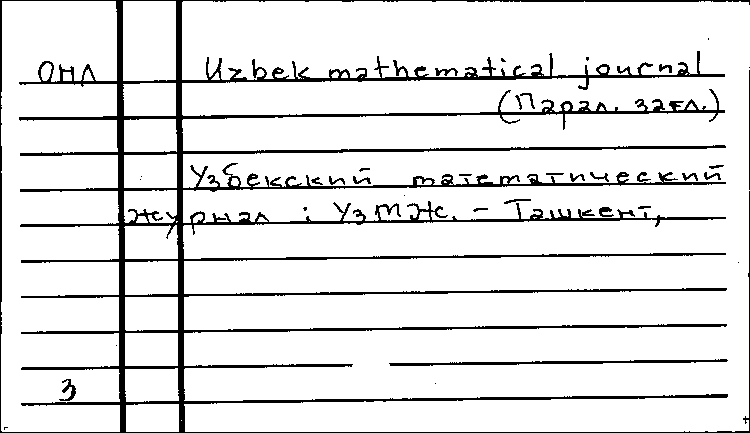 ОНЛ Uzbek mathematical journal
(Парал. загл.)
Узбекский математический
журнал : УзМЖ. - Ташкент,
3